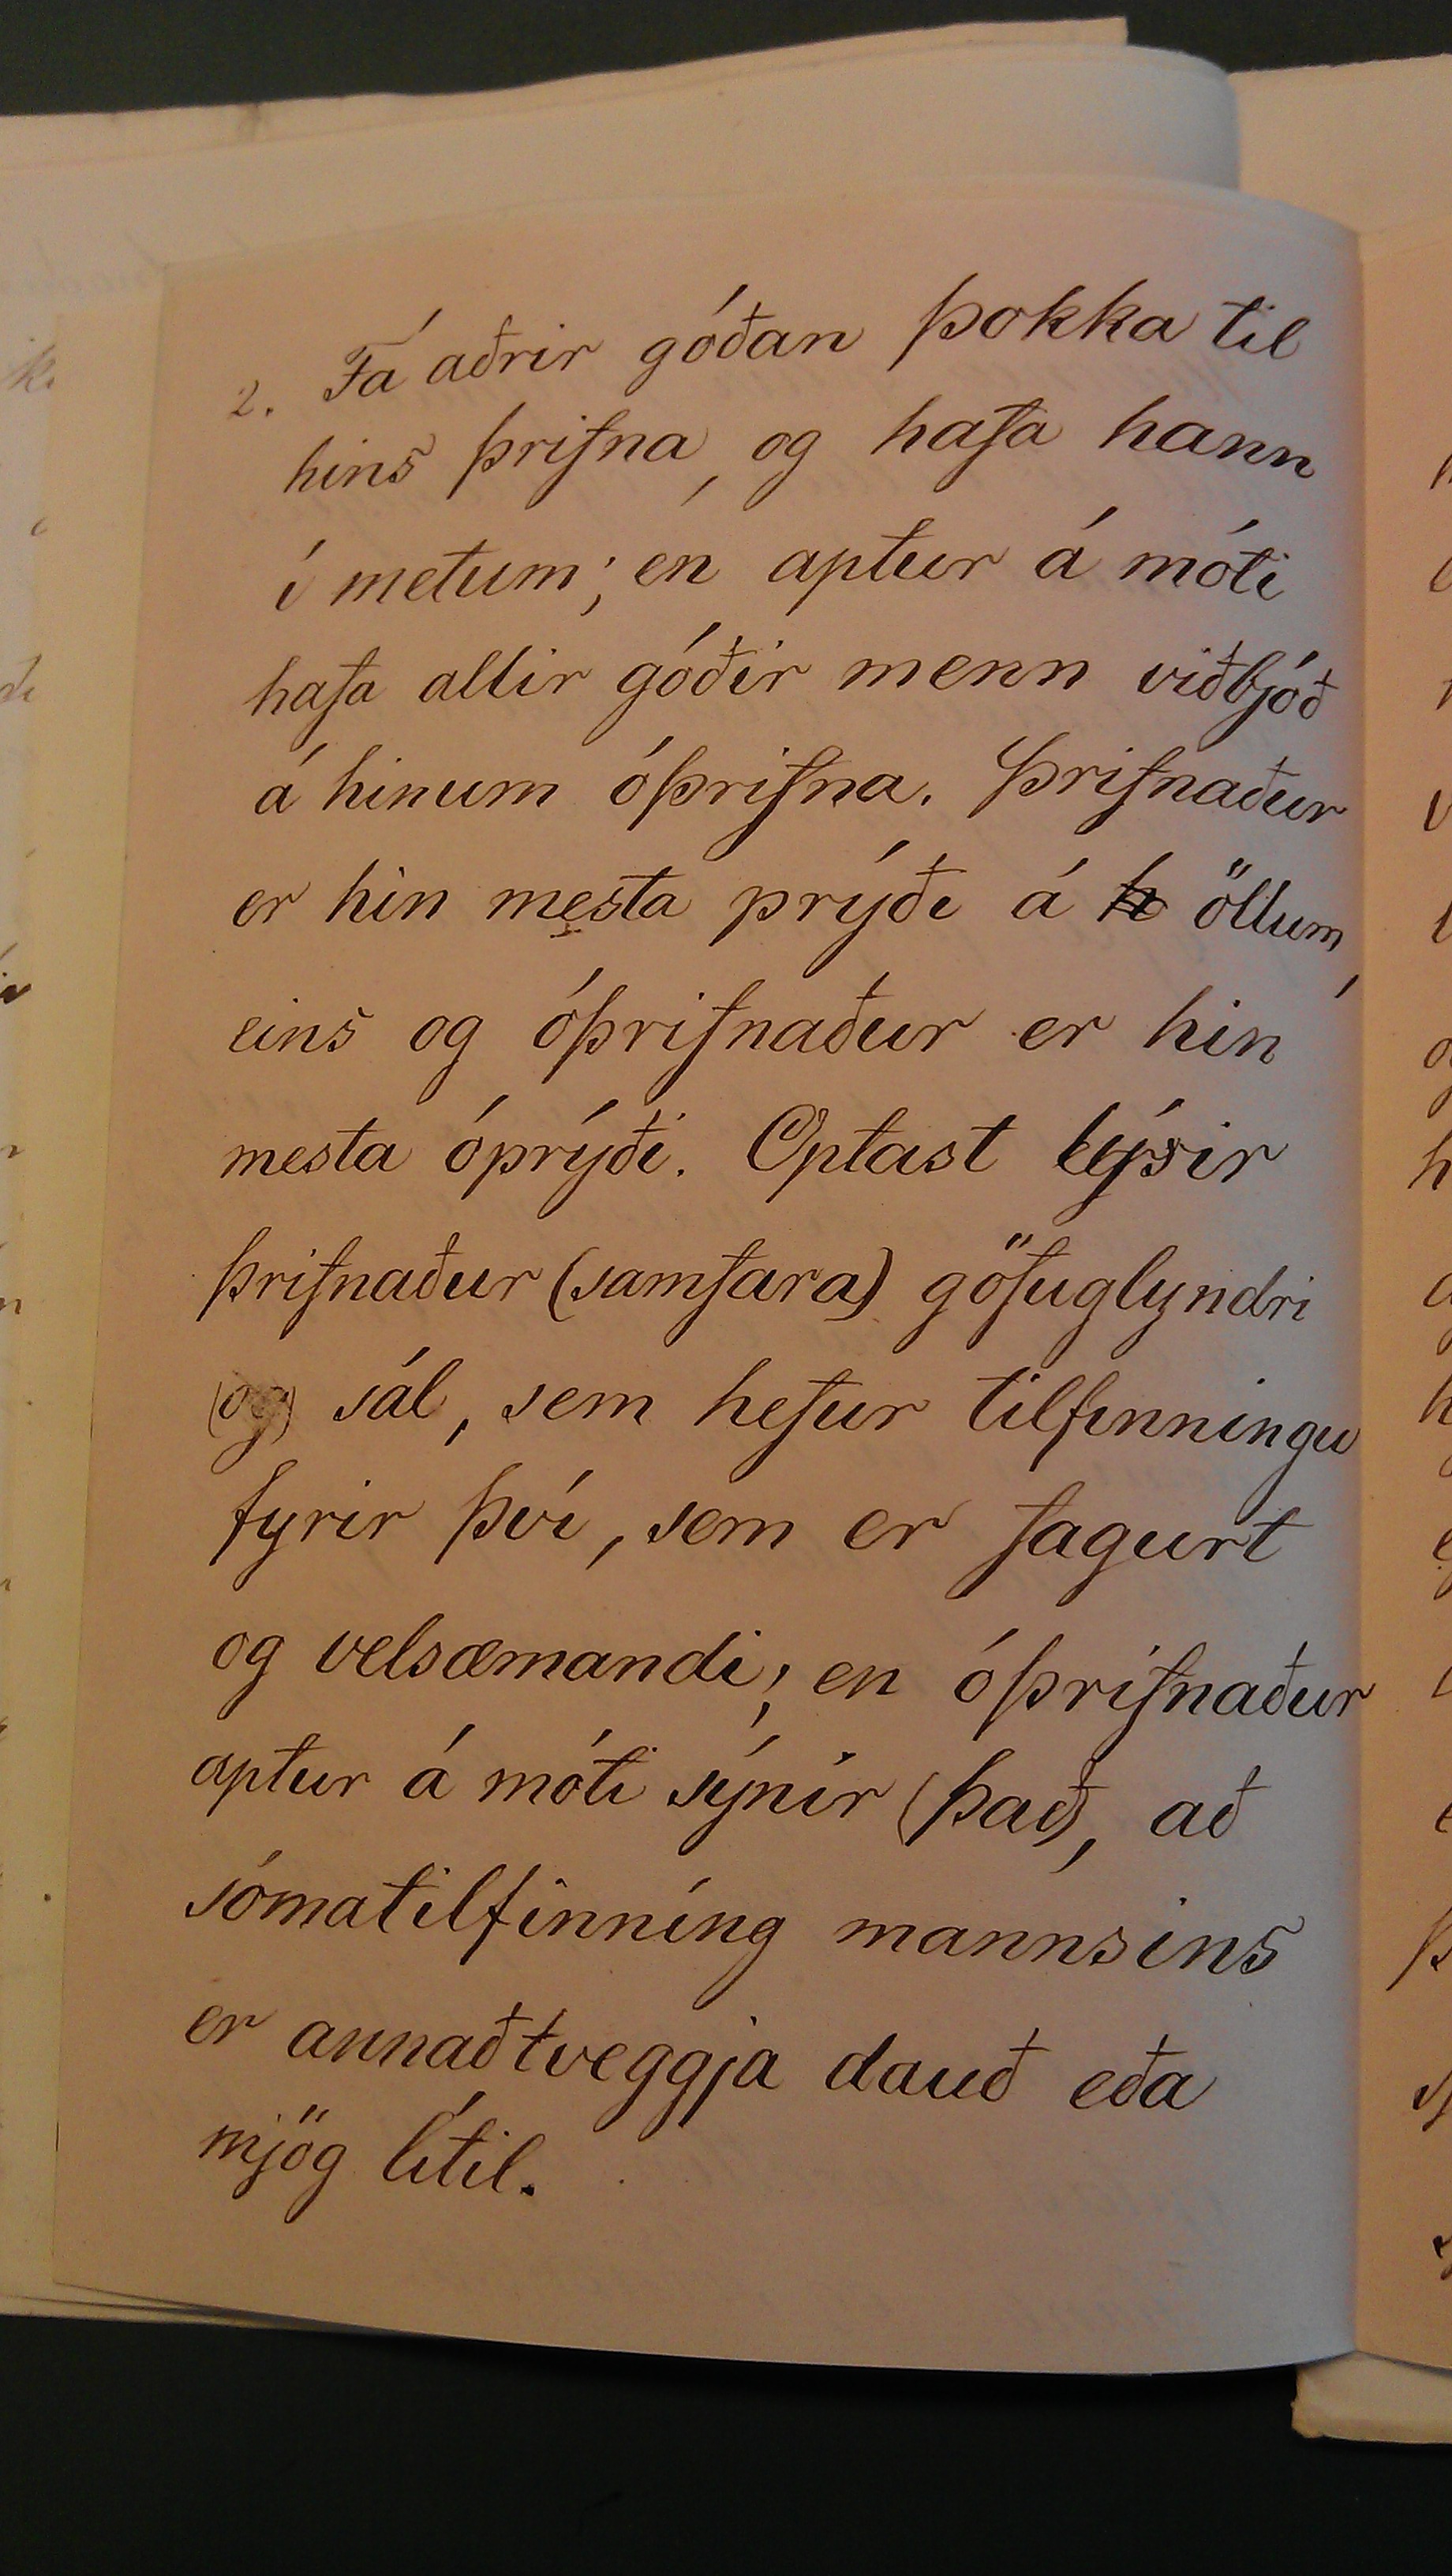 2. Fá aðrir góðan þokka til
hins þrifna, og hafa hann
í metum; en aptur á móti
hafa allir góðir menn viðbjóð
á hinum óþrifna. Þrifnaður
er hin mesta prýði á öllum,
eins og óþrifnaður er hin
mesta óprýði. Optast lýsir
þrifnaður (samfara) göfuglyndri
(og) sál, sem hefur tilfinningu
fyrir því, sem er fagurt
og velsæmandi; en óþrifnaður
aptur á móti sýnir (það), að
sómatilfinníng mannsins
er annaðtveggja dauð eða
mjög lítil.